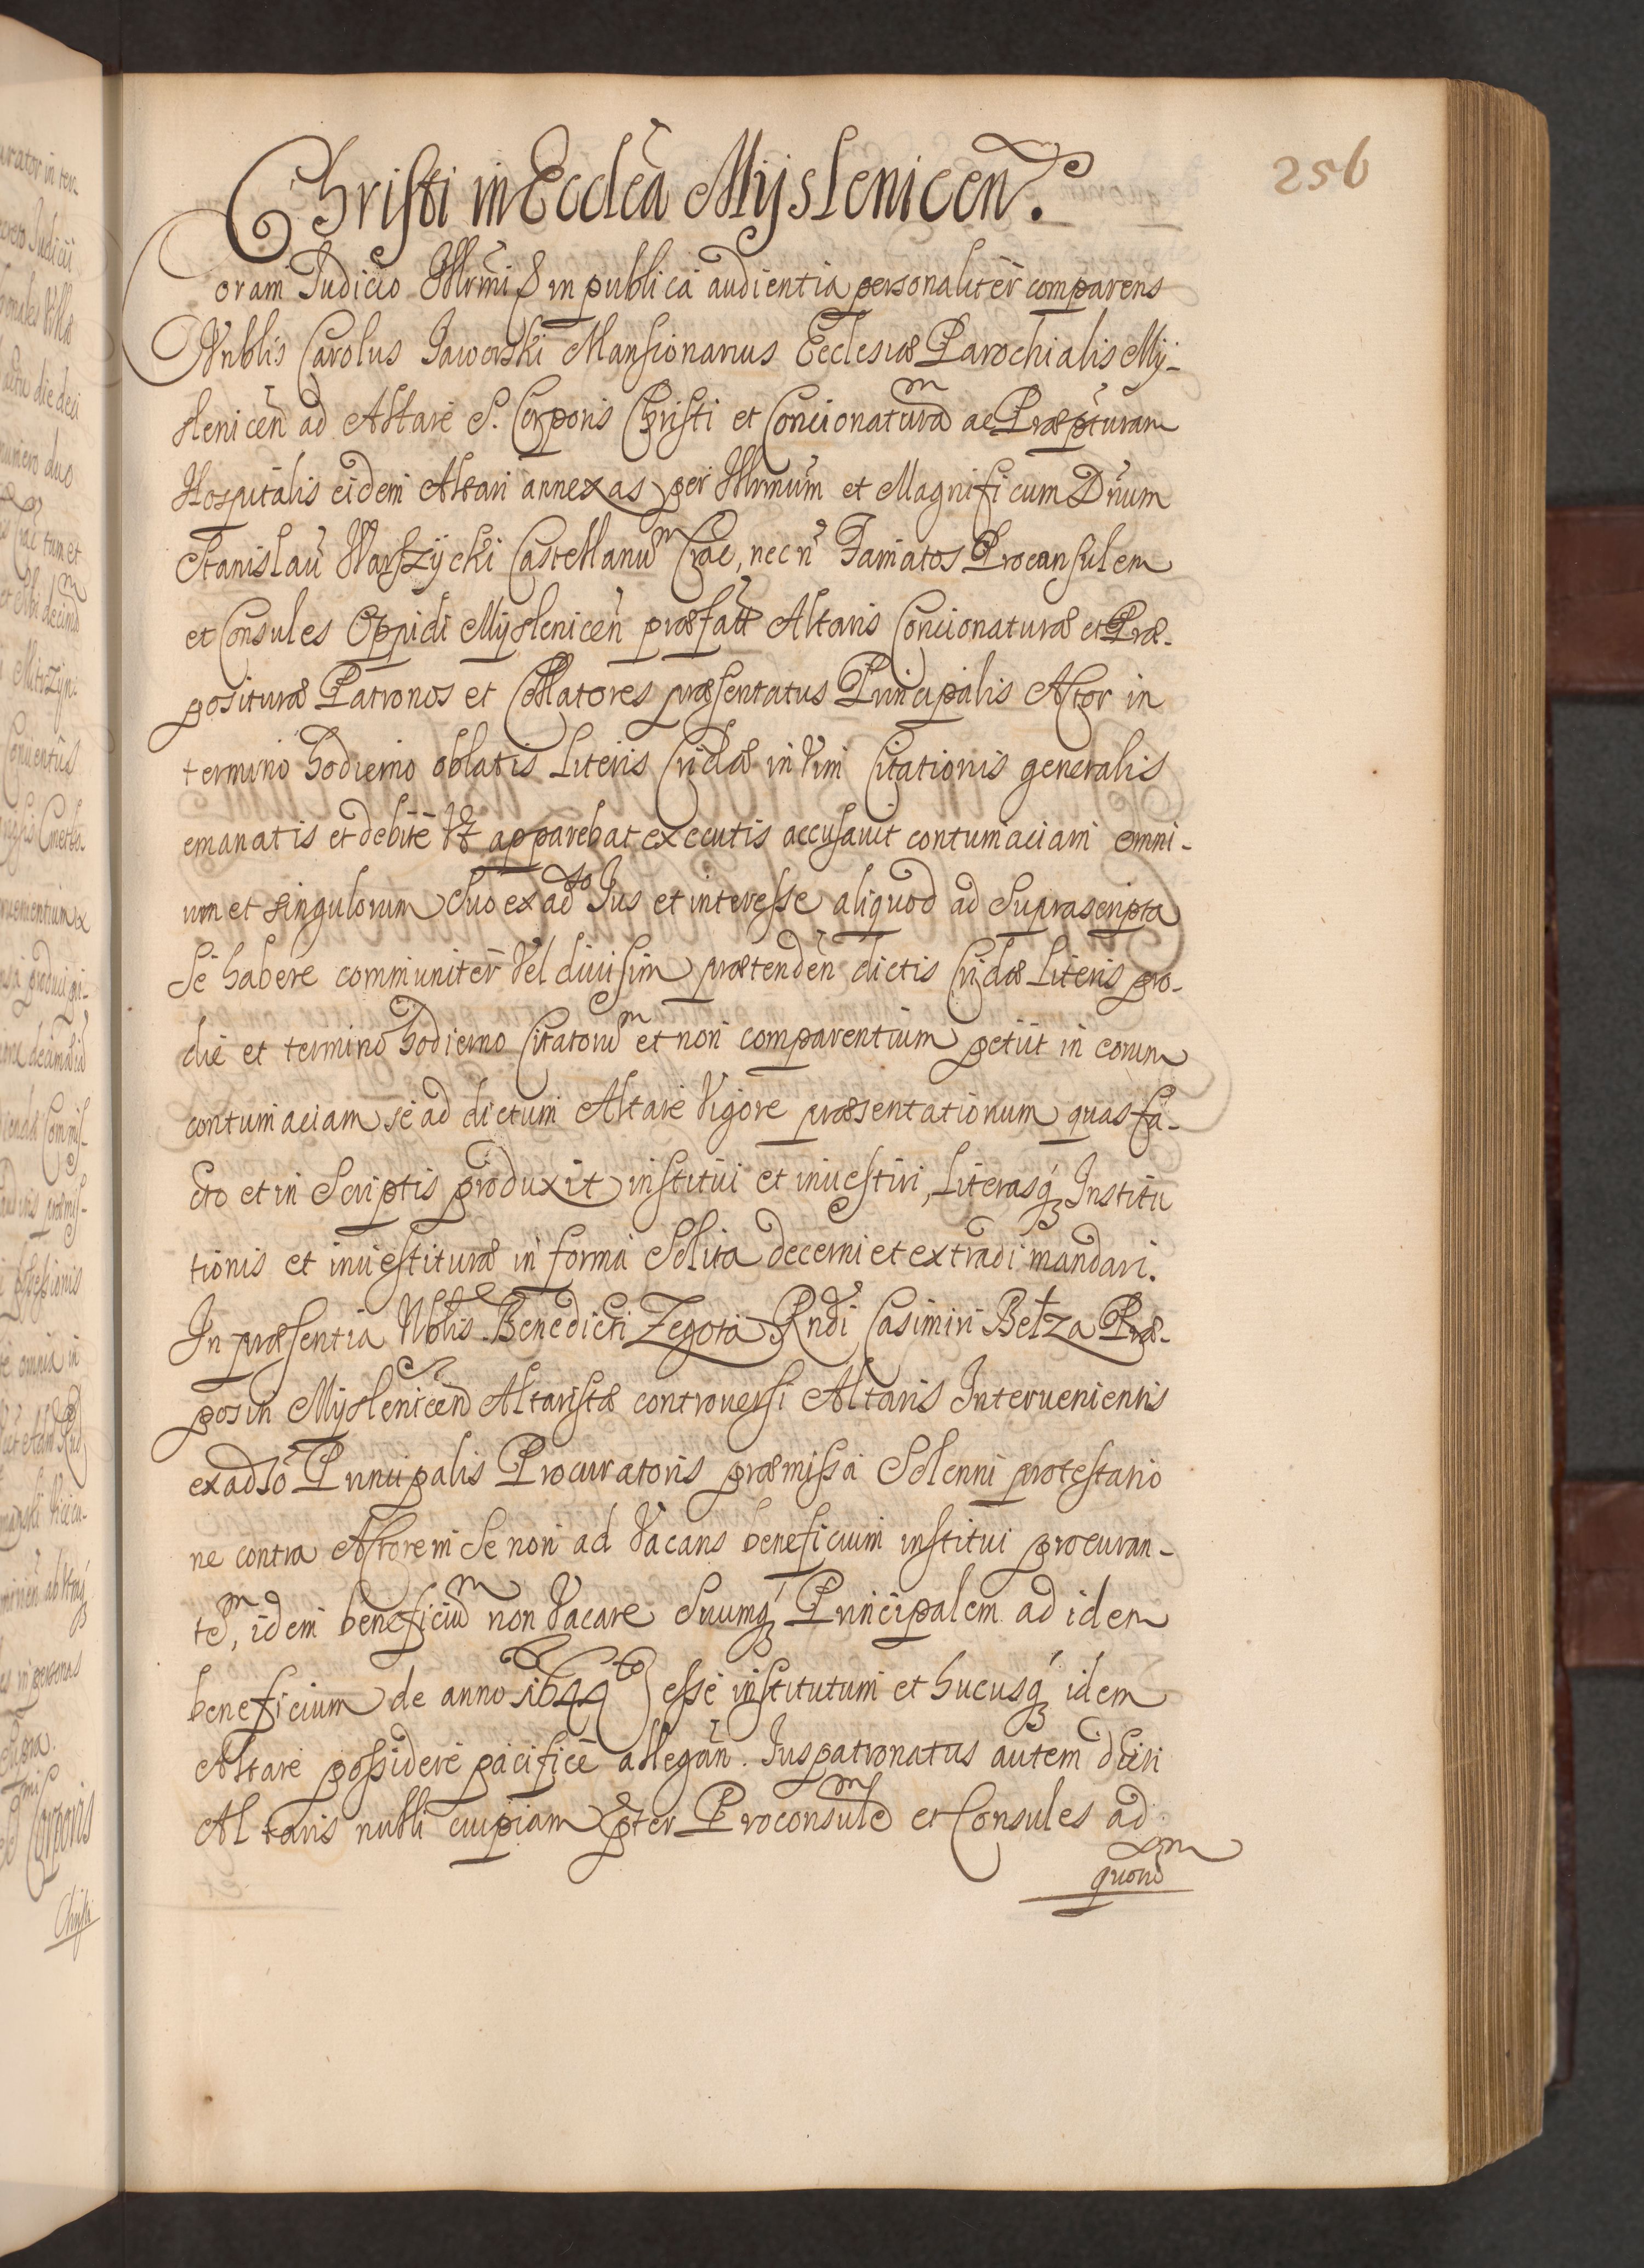 256
Christi in Ecclẽa Myslenicen̄.
Coram Judicio Illrmi & in publica audientia personaliter comparens
Vnblis Carolus Jaworski Mansionarius Ecclesiæ Parochialis My-
slenicen̄ ad Altare S. Corporis Christi et Concionaturam ac Præpturam
Hospitalis eidem Altari annexas per Illrmum et Magnificum Dnum
Stanislaũ Warszycki Castellanum Crac, nec n̄ Famatos Proconsulem
et Consules Oppidi Myslenicen̄ præfatt Altaris Concionaturæ et Præ-
posituræ Patronos et Collatores præsentatus Principalis Actor in
termino hodierno oblatis Literis Cridæ in vim Citationis generalis
emanatis et debite Vt apparebat executis accusauit contumaciam omni-
um et singulorum suo ex adso Jus et interesse aliquod ad suprascripta
se habere communiter Vel diuisim prætenden̄ dictis Cridæ Literis pro-
die et termino hodierno Citatorum et non comparentium petiit in eorum
contumaciam se ad dictum Altare Vigore præsentationum quas fa-
cto et in Scriptis produxit institui et inuestiri, Literasq́ Institu
tionis et inuestituræ in forma Solita decerni et extradi mandari.
In præsentia Nblis Benedicti Zegota Rndi Casimiri Bełza Præ-
positi Myslenicen̄ Altaristæ controuersi Altaris Interuenientis
ex adso Principalis Procuratoris præmissa Solenni protestatio
ne contra Actorem se non ad Vacans beneficium institui procuran-
tem, idem beneficium non Vacare Suumq́ Principalem ad idem
beneficium de anno 1644to esse institutum et hucusq́ idem
Altare possidere pacifice allegan̄. Juspatronatus autem dicti
Altaris nulli cuipiam pter Proconsulem et Consules ad
quorum